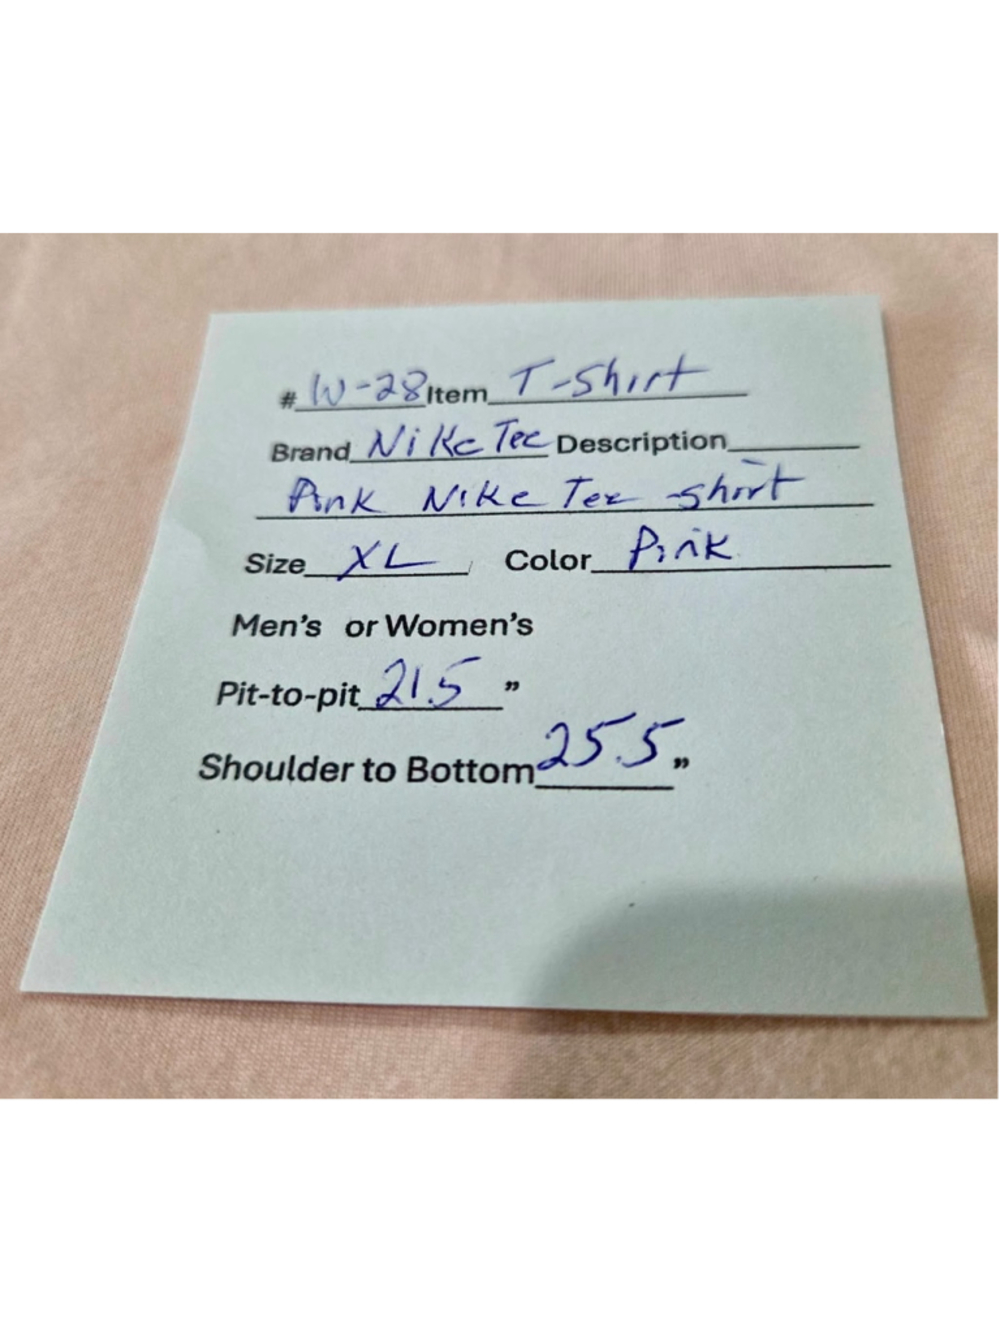 # W-28 Item T-Shirt
Brand Nike Tee Description
Pink Nike Tee -shirt
Size XL Color Pink
Men's or Women's
Pit-to-pit 21.5 "
Shoulder to Bottom 25.5 "